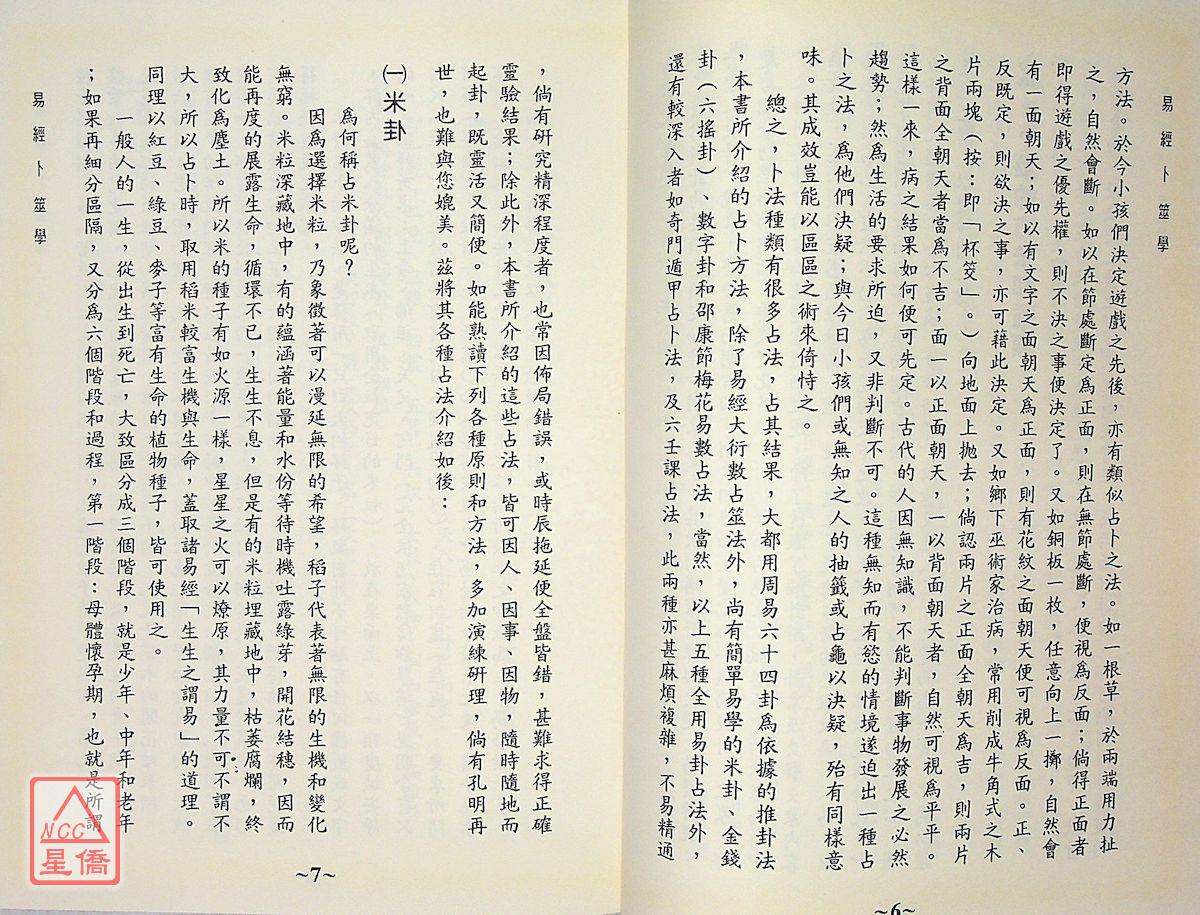 易經卜筮學
方法。於今小孩們決定遊戲之先後，亦有類似占卜之法。如一根草，於兩端用力扯
之，自然會斷。如以在節處斷定為正面，則在無節處斷，便視為反面；倘得正面者
即得遊戲之優先權，則不決之事便決定了。又如銅板一枚，任意向上一擲，自然會
有一面朝天；如以有文字之面朝天為正面，則有花紋之面朝天便可視為反面。正、
反既定，則欲決之事，亦可藉此決定。又如鄉下巫術家治病，常用削成牛角式之木
片兩塊（按：即「杯筊」。）向地面上拋去；倘認兩片之正面全朝天為吉，則兩片
之背面全朝天者當為不吉；面一以正面朝天，一以背面朝天者，自然可視為平平。
這樣一來，病之結果如何便可先定。古代的人因無知識，不能判斷事物發展之必然
趨勢；然為生活的要求所迫，又非判斷不可。這種無知而有慾的情境遂迫出一種占
卜之法，為他們決疑；與今日小孩們或無知之人的抽籤或占龜以決疑，殆有同樣意
味。其成效豈能以區區之術來倚恃之。
總之，卜法種類有很多占法，占其結果，大都用周易六十四卦為依據的推卦法
，本書所介紹的占卜方法，除了易經大衍數占筮法外，尚有簡單易學的米卦、金錢
卦（六搖卦）、數字卦和邵康節梅花易數占法，當然，以上五種全用易卦占法外，
還有較深入者如奇門遁甲占卜法，及六壬課占法，此兩種亦甚麻煩複雜，不易精通
~6~
，倘有研究精深程度者，也常因佈局錯誤，或時辰拖延便全盤皆錯，甚難求得正確
靈驗結果；除此外，本書所介紹的這些占法，皆可因人、因事、因物，隨時隨地而
起卦，既靈活又簡便。如能熟讀下列各種原則和方法，多加演練研理，倘有孔明再
世，也難與您媲美。茲將其各種占法介紹如後：
㈠米卦
為何稱占米卦呢？
因為選擇米粒，乃象徵著可以漫延無限的希望，稻子代表著無限的生機和變化
無窮。米粒深藏地中，有的蘊涵著能量和水份等待時機吐露綠芽，開花結穗，因而
能再度的展露生命，循環不已，生生不息，但是有的米粒埋藏地中，枯萎腐爛，終
致化為塵土。所以米的種子有如火源一樣，星星之火可以燎原，其力量不可不謂不
大，所以占卜時，取用稻米較富生機與生命，蓋取諸易經「生生之謂易」的道理。
同理以紅豆、綠豆、麥子等富有生命的植物種子，皆可使用之。
一般人的一生，從出生到死亡，大致區分成三個階段，就是少年、中年和老年
；如果再細分區隔，又分為六個階段和過程，第一階段：母體懷孕期，也就是所謂
易經卜筮學
~7~
NCC
星僑